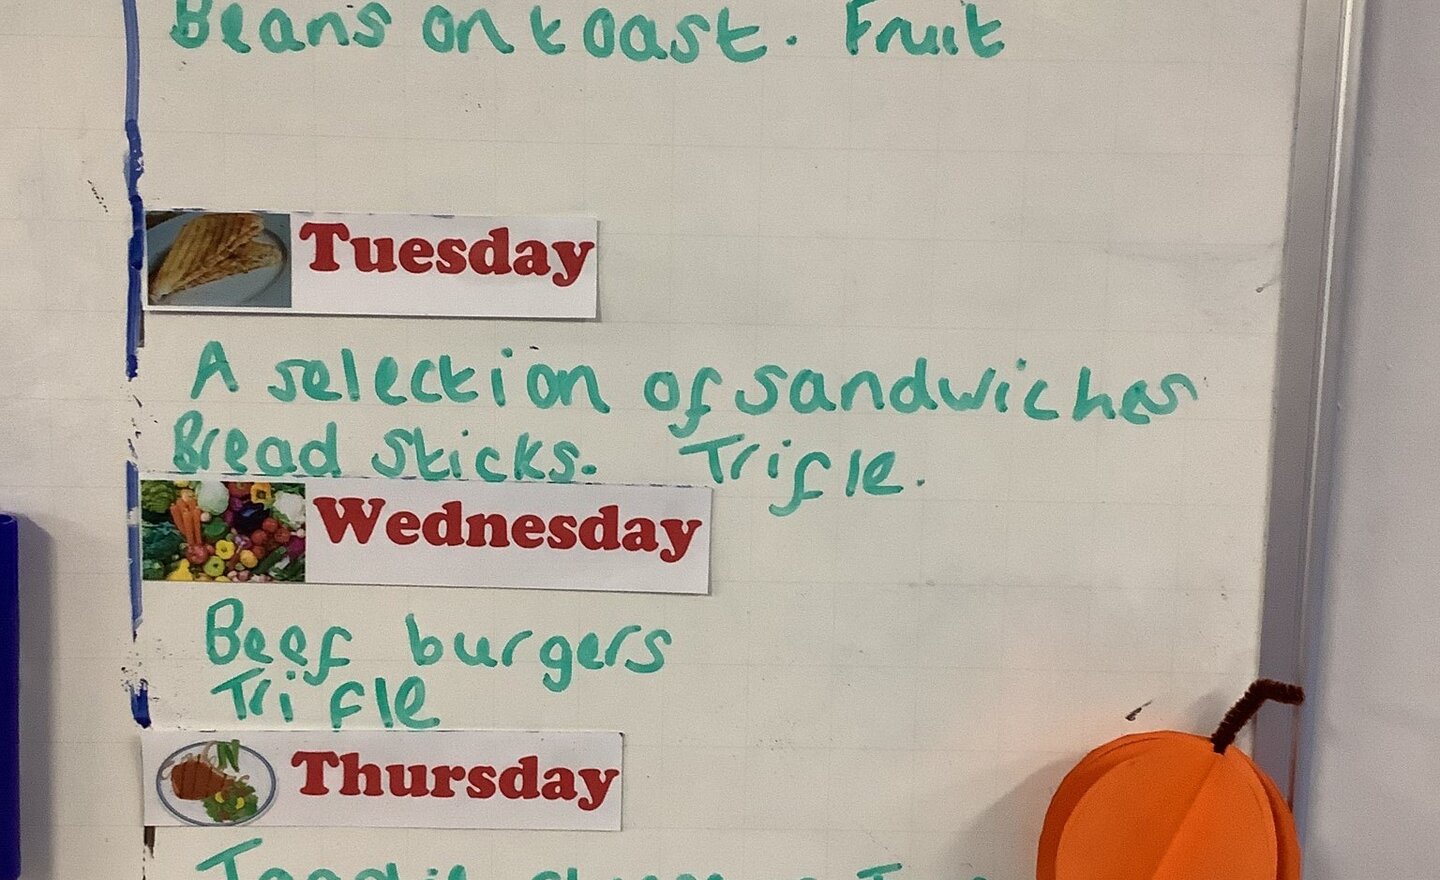 Beans on toast. Fruit
Tuesday
A selection of sandwiches
Bread sticks. Trifle.
Wednesday
Beef burgers
Trifle
Thursday